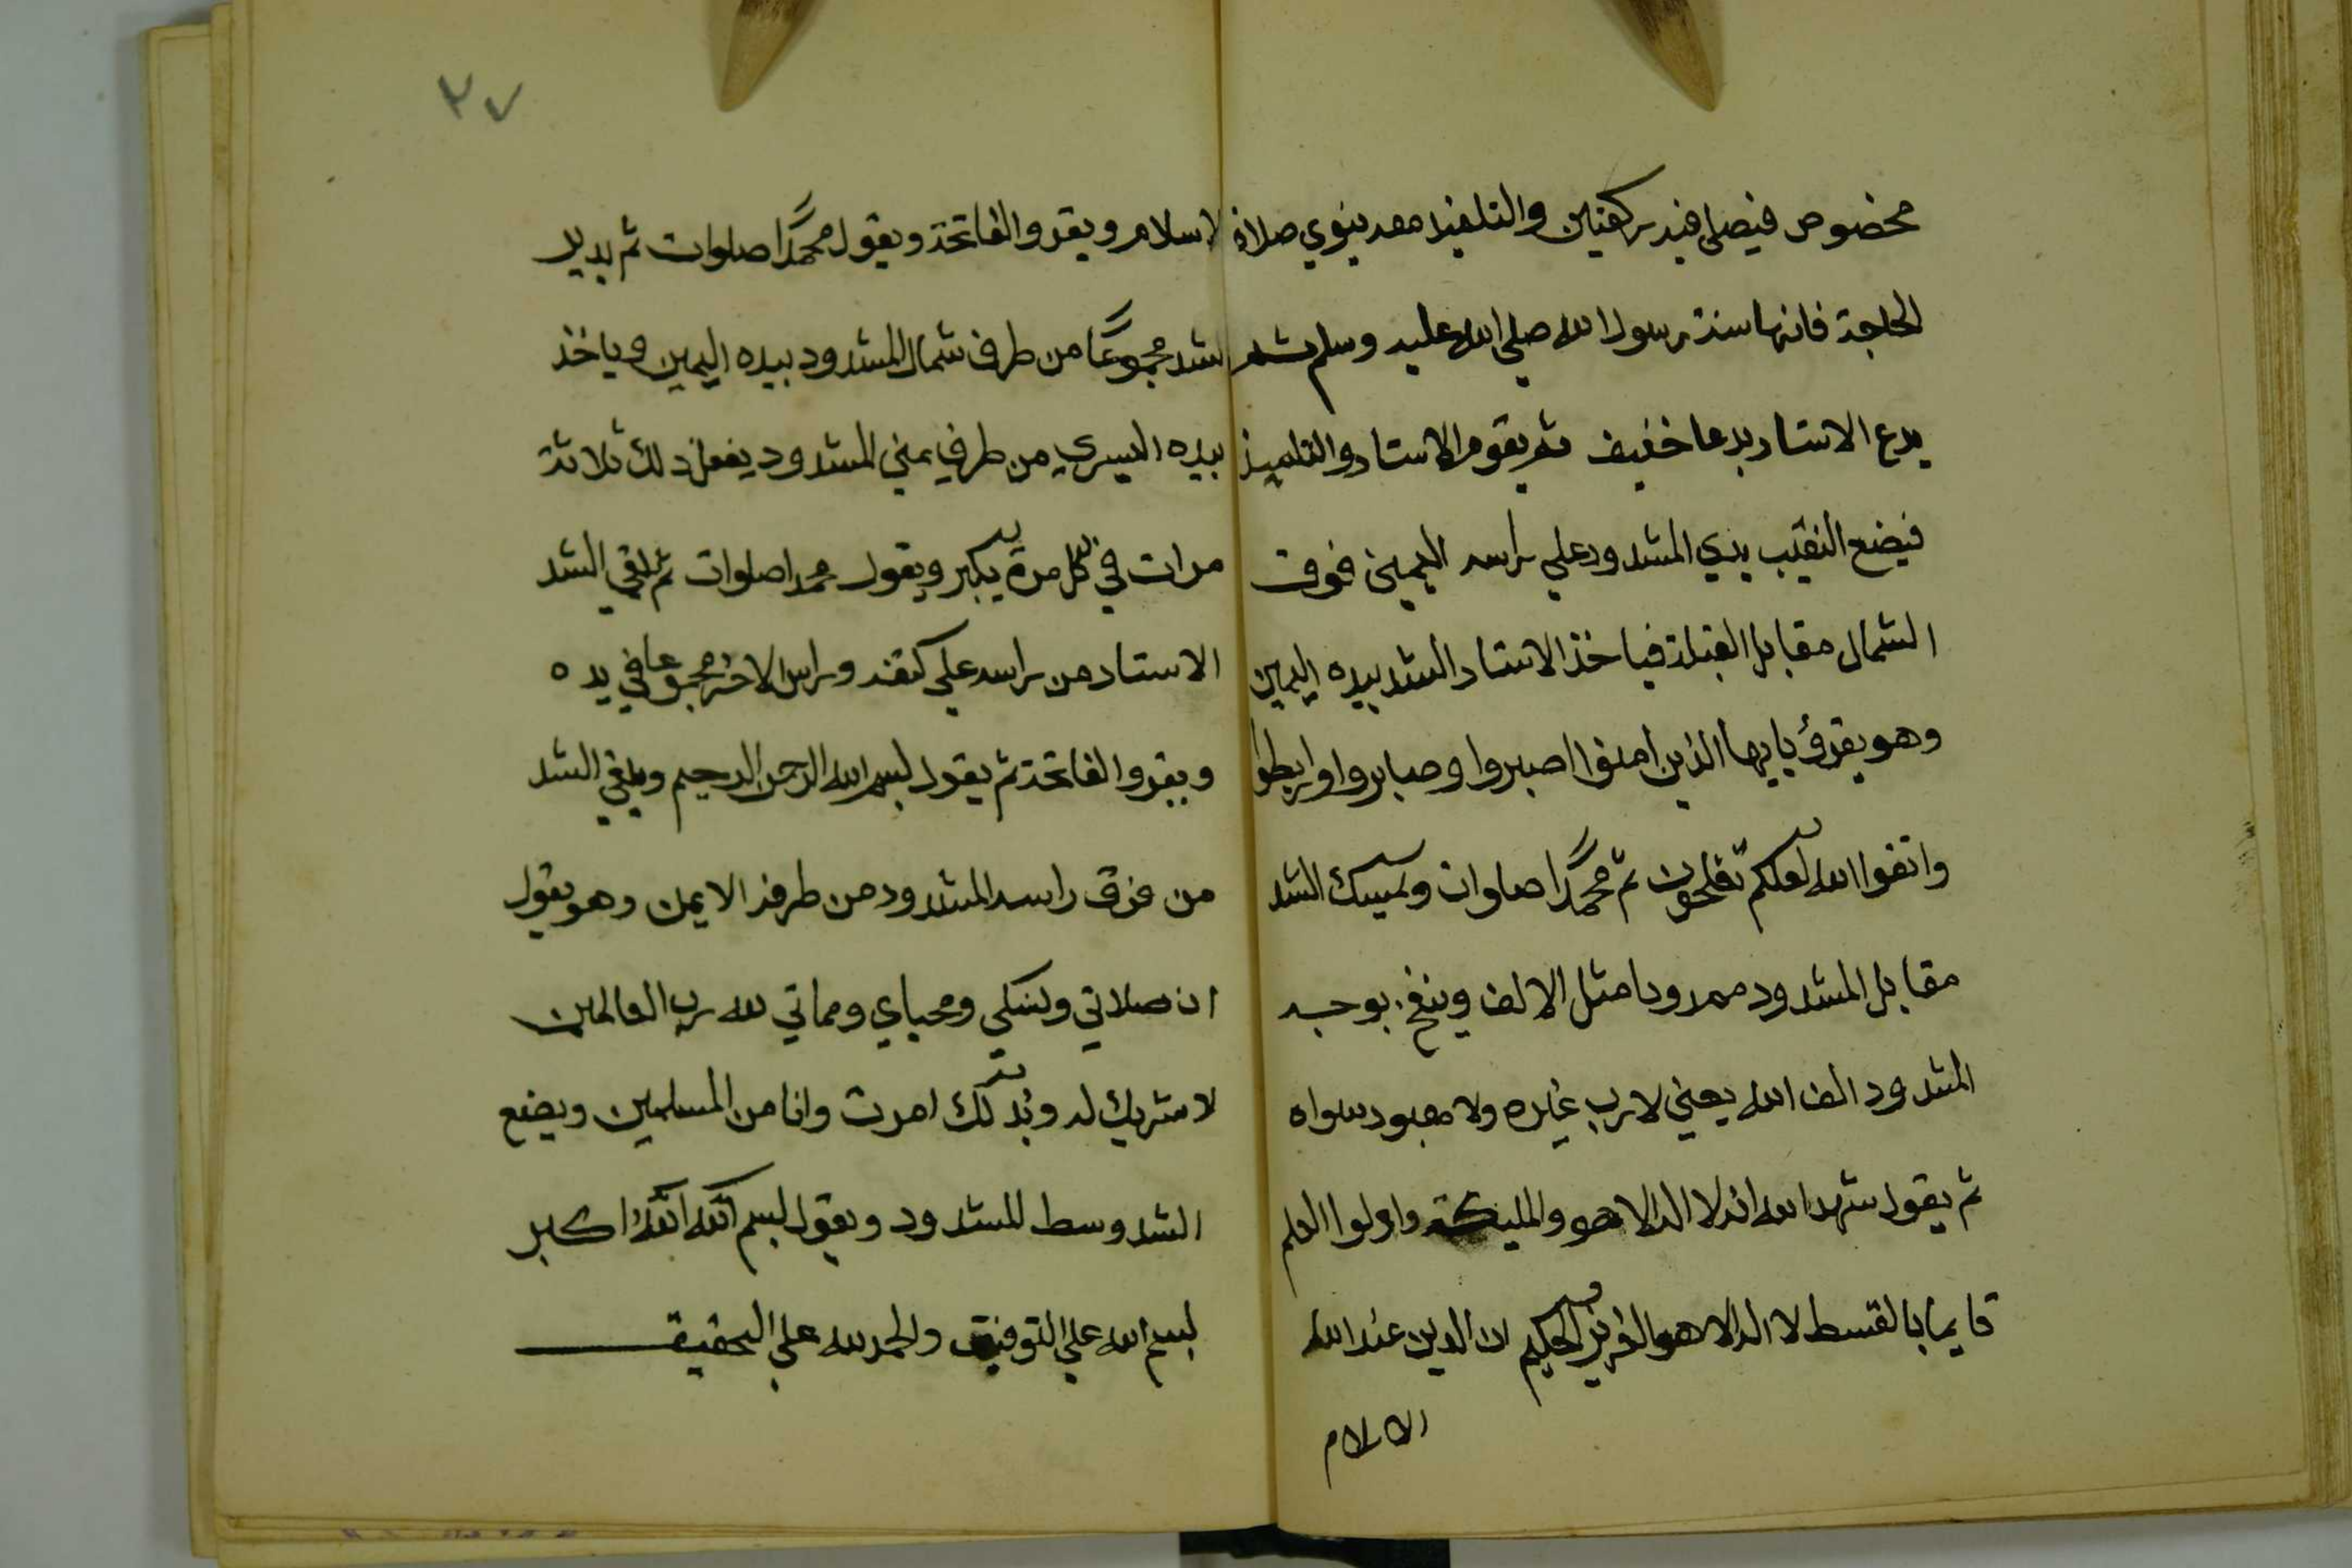 مخصوص فيصلي فيه ركعتين والتلميذ معه ينوي صلاة
الحاجة فانها سنة رسول الله صلي الله عليه وسلم ثم
يدع الاستاد بدعا خفيف ثم يقوم الاستاد والتلميذ
فيضع النقيب يدي المشدود علي راسه اليمين فوق
الشمال مقابل القبلة فياخذ الاستاد الشد بيده اليمين
وهو يقرؤ يايها الذين امنوا اصبروا وصابروا ورابطوا
واتقوا الله لعلكم تفلحون ثم محمدا صلوات ويمسك الشد
مقابل المشدود ممدودا مثل الالف وينفخ بوجه
المشدود الف الله يعني لا رب غيره ولا معبود سواه
ثم يقول شهد الله انه لا اله الا هو والمليكة واولوا العلم
قايما بالقسط لا اله الا هو العزيز الحكيم ان الدين عند الله
الاسلام
٢٧
لاسلام ويقروا الفاتحة ويقول محمدا صلوات ثم يدير
الشد مجموعا من طرف شمال المشدود بيده اليمين وياخذ
بيده اليسري من طرف يمني المشدود يفعل ذلك ثلاثة
مرات في كل مرة يكبر ويقول محمدا صلوات ثم يلقي الشد
الاستاد من راسه علي كتفه وراس الاخر مجموعا في يده
ويقروا الفاتحة ثم يقول بسم الله الرحمن الرحيم ويلقي الشد
من فوق راس المشدود من طرفه الايمن وهو يقول
ان صلاتي ونسكي ومحياي ومماتي لله رب العالمين
لا شريك له وبذلك امرت وانا من المسلمين ويضع
الشد وسط المشدود ويقول بسم الله الله اكبر
بسم الله علي التوفيق والحمد لله علي التحقيق